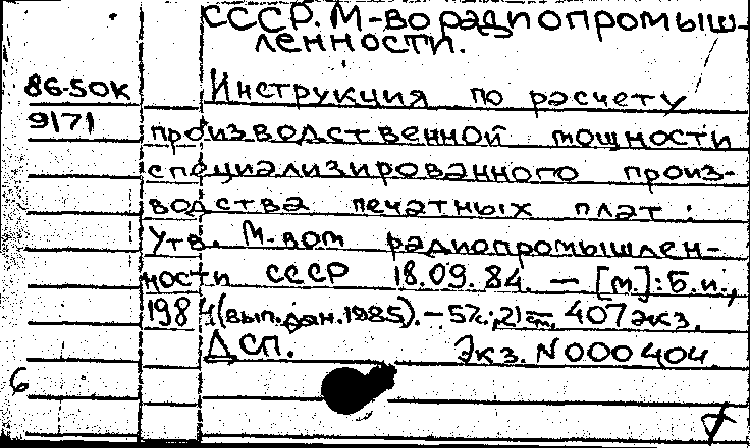 СССР. М-во радиопромыш-
ленности.
86-50К
9171
Инструкция по расчету
производственной мощности
специализированного произ-
водства печатных плат:
Утв. М-вом радиопромышлен-
ности СССР 18.09.84. — [М.]: Б.и.,
1984 (вып.дан.1985). – 52с.; 21 см. 407 экз.
ДСП. Экз. N 000404.
6